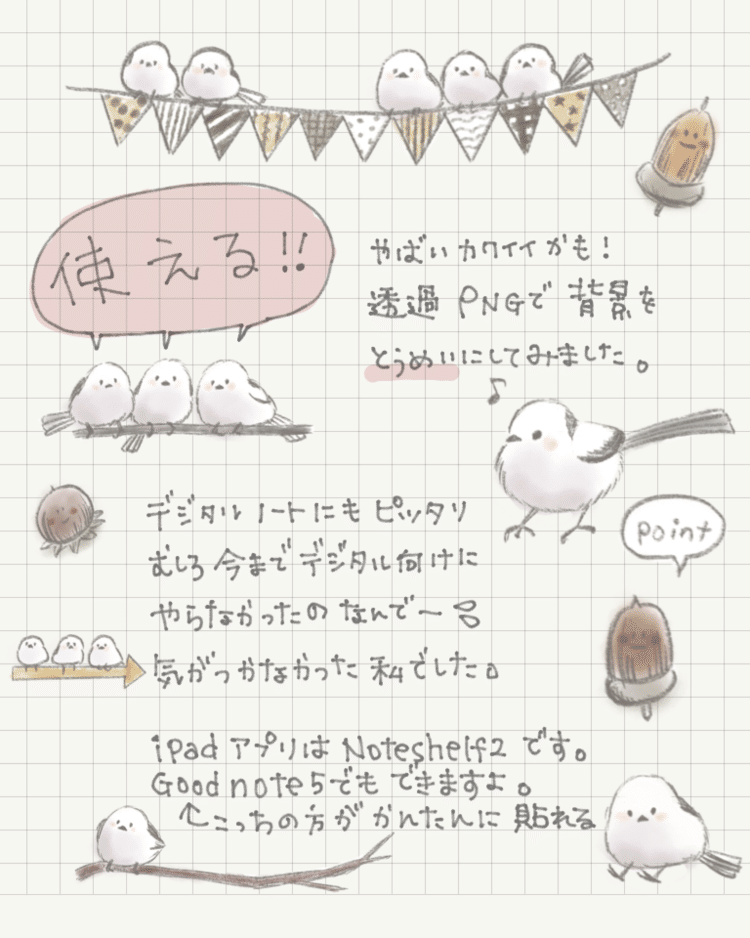 使える!!
やばいカワイイかも!
透過PNGで背景を
とうめいにしてみました。
♪
point
デジタルノートにもピッタリ
むしろ今までデジタル向けに
やらなかったのなんで〜
気がつかなかった私でした。
ipadアプリはNoteshelf2です。
Goodnote5でもできますよ。
↑こっちの方がかんたんに貼れる